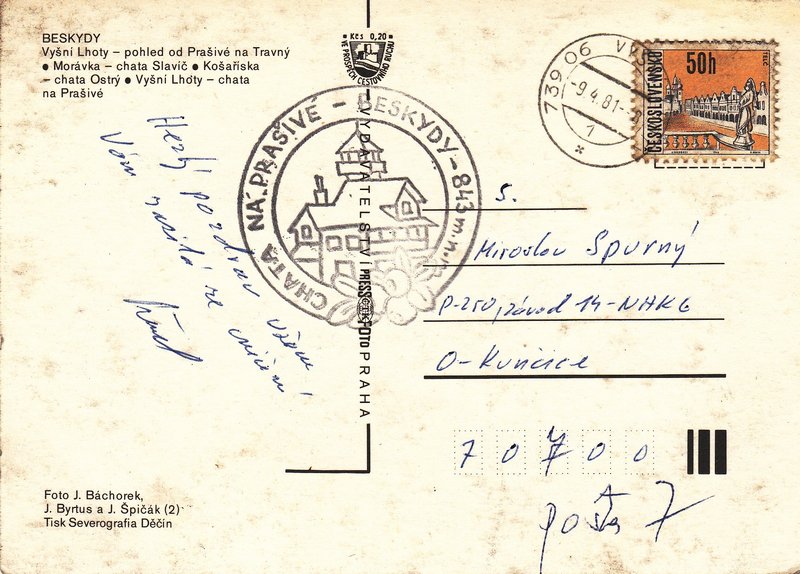 BESKYDY
Vyšní Lhoty – pohled od Prašivé na Travný
● Morávka – chata Slavíč ● Košařiska
– chata Ostrý ● Vyšní Lhóty – chata
na Prašivé
Kčs 0,20
VE PROSPĚCH CESTOVNÍHO RUCHU
739 06
-9.4.81-
1
50h
ČESKOSLOVENSKO
TELČ
CHATA NA PRAŠIVÉ – BESKYDY – 843 m n. m.
VYDAVATELSTVÍ PRESSFOTO PRAHA
Hezký pozdrav všem
Vám zasílá ze cvičení
S.
Miroslav Spurný
P-250, závod 14-NHKG
O-Kunčice
70700
pošta 7
Foto J. Báchorek,
J. Byrtus a J. Špičák (2)
Tisk Severografia Děčín